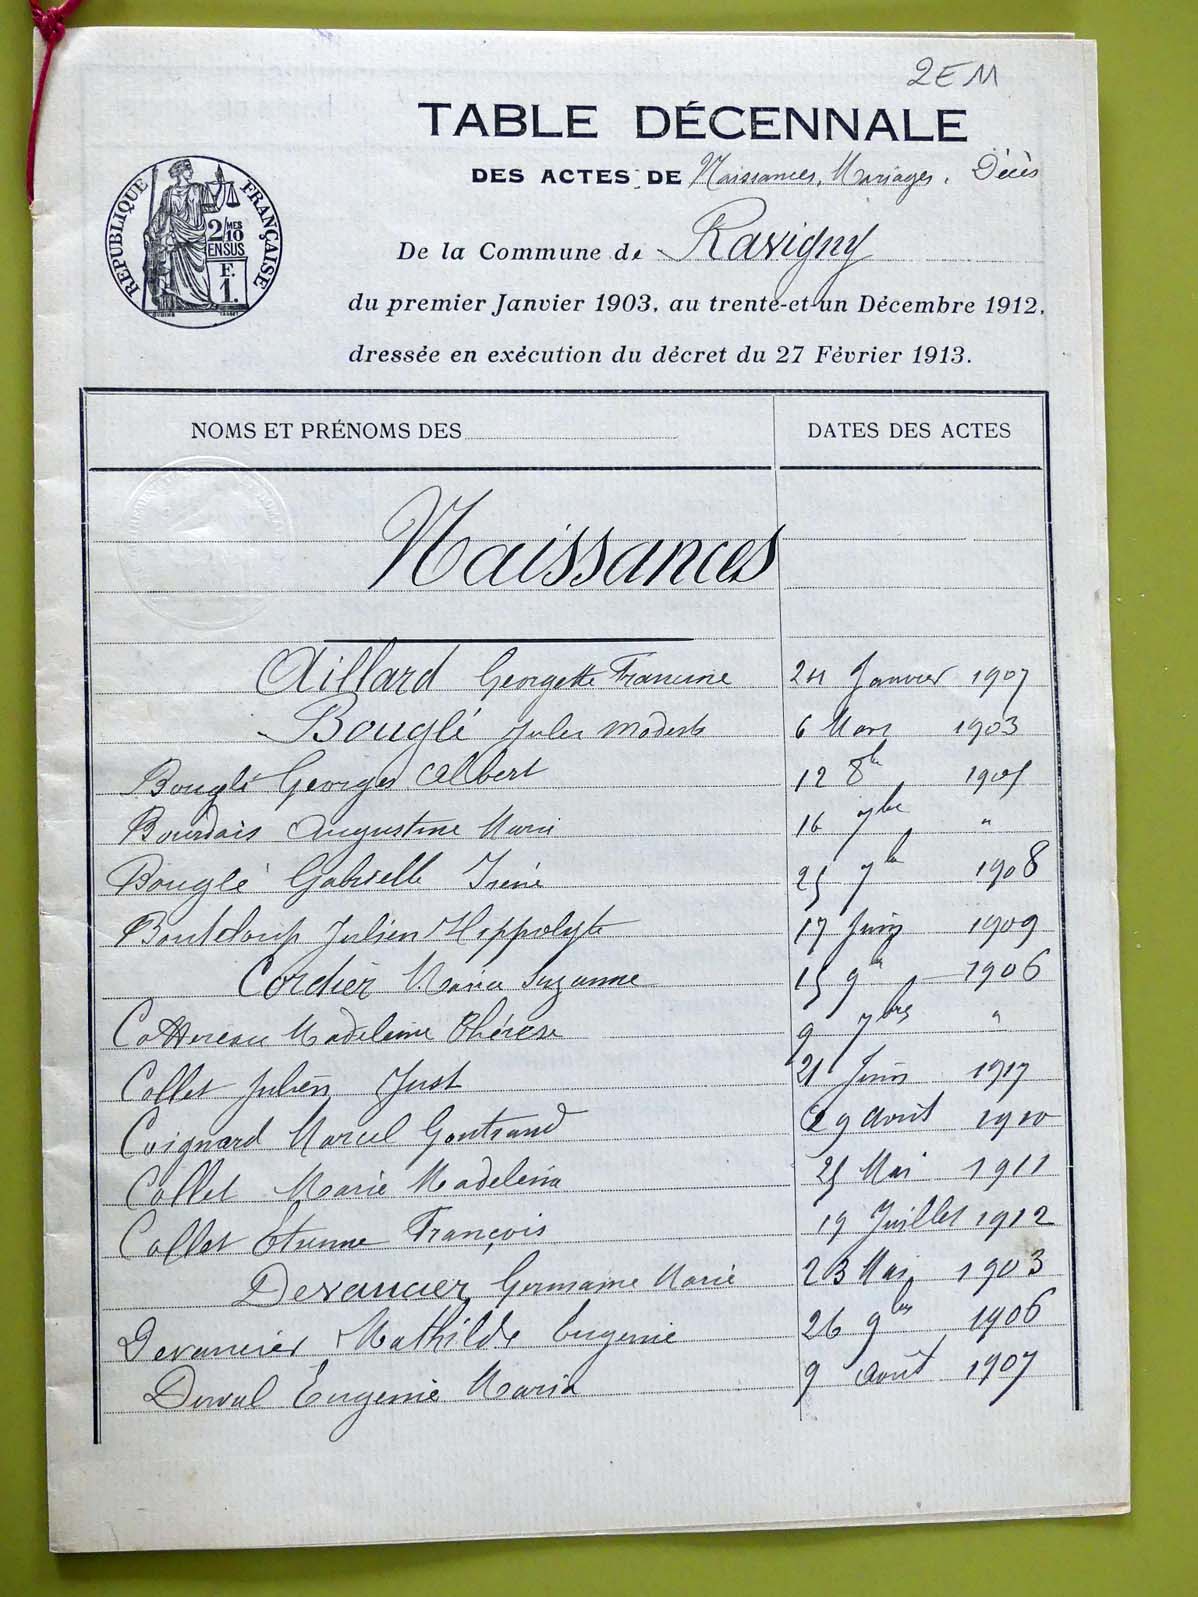 2 E 11
TABLE DÉCENNALE
DES ACTES DE Naissances, Mariages, Décès
De la Commune de Ravigny
du premier Janvier 1903, au trente-et-un Décembre 1912,
dressée en exécution du décret du 27 Février 1913.
RÉPUBLIQUE FRANÇAISE
2/10 MES
EN SUS
F.
1.
NOMS ET PRÉNOMS DES DATES DES ACTES
Naissances
Aillard Georgette Francine 24 Janvier 1907
Bouglé Jules Modeste 6 Mars 1903
Bouglé Georges Albert 12 8bre 1905
Bourdais Augustine Marie 16 7bre "
Bouglé Gabrielle Irène 25 7bre 1908
Bouteloup Julien Hippolyte 17 Juin 1909
Cordier Maria Suzanne 15 9bre 1906
Cottereau Madeleine Thérèse 9 7bres "
Collet Julien Just 21 Juin 1917
Coignard Marcel Gontrand 29 Avril 1910
Collet Marie Madeleine 25 Mai 1911
Collet Etienne François 19 Juillet 1912
Devancier Germaine Marie 23 Mai 1903
Devancier Mathilde Eugenie 26 9bres 1906
Duval Eugenie Maria 9 Août 1907